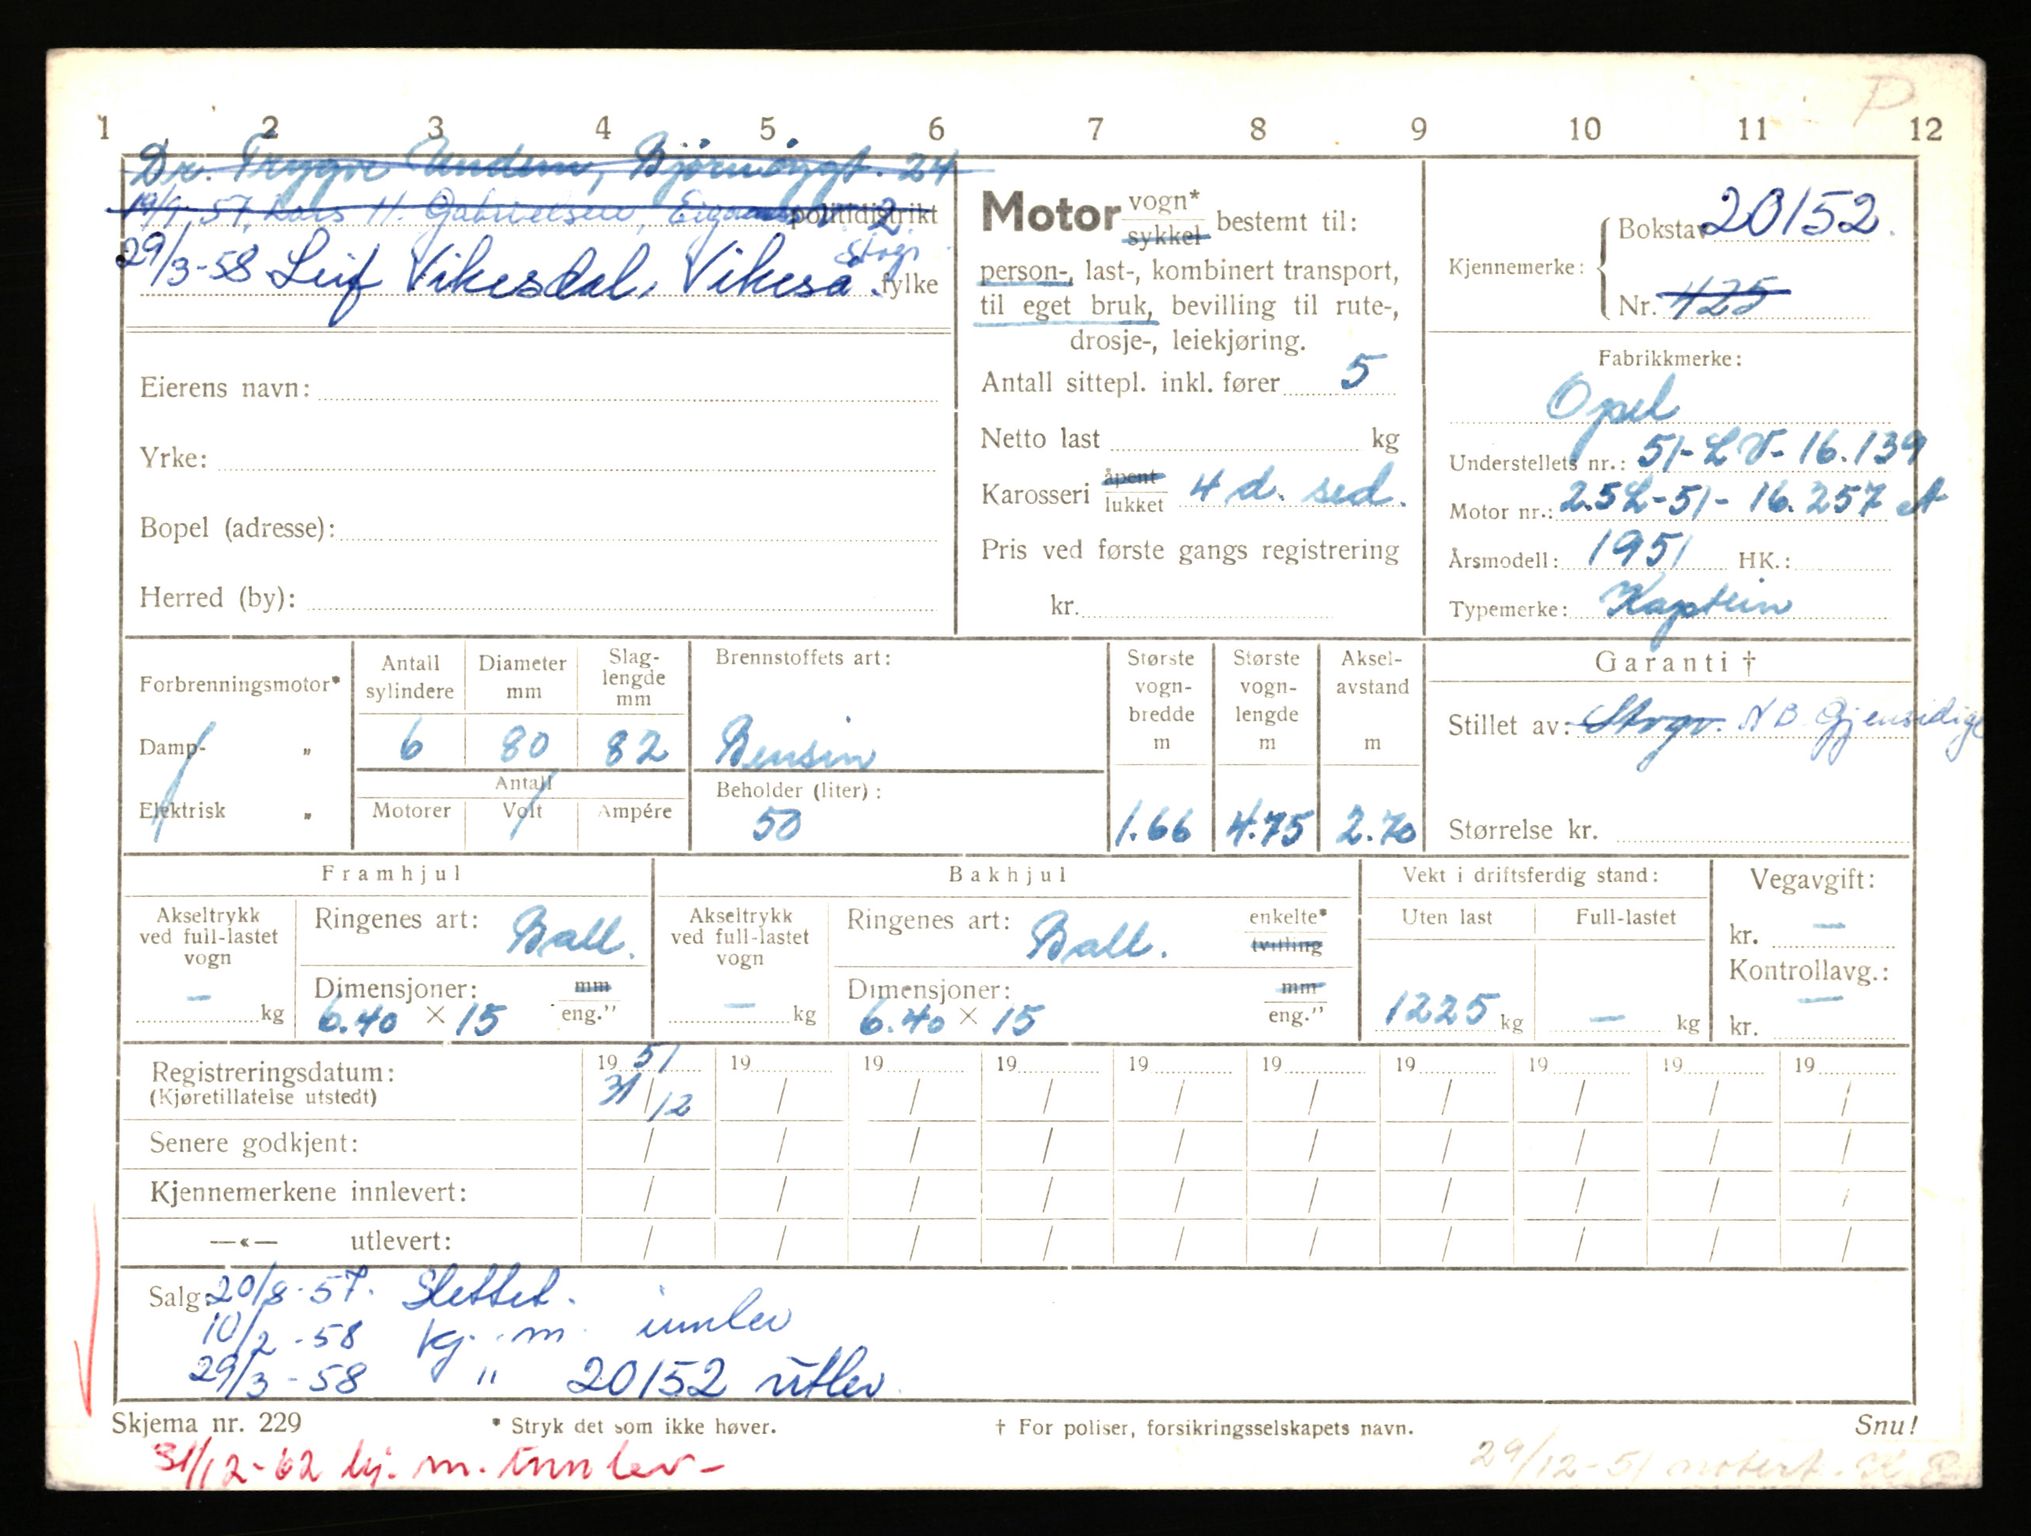 1 2 3 4 5 6 7 8 9 10 11 12
P
Dr. Trygve Undem, Bjørnøygt. 24
19/9.57. Lars H. Gabrielsen, 2 politidistrikt
Stvgr.
29/3-58 Leif Vikesdal, Vikeså. fylke
Eierens navn:
Yrke:
Bopel (adresse):
Herred (by):
Motor vogn* sykkel bestemt til:
person-, last-, kombinert transport,
til eget bruk, bevilling til rute-,
drosje-, leiekjøring.
Antall sittepl. inkl. fører 5
Netto last kg
Karosseri åpent lukket 4 d. sed.
Pris ved første gangs registrering
kr.
Kjennemerke: Bokstav 20152.
Nr. 425
Fabrikkmerke:
Opel
Understellets nr.: 51-LV-16.139
Motor nr.: 2.5L-51-16.257
Årsmodell: 1951 HK.:
Typemerke: Kaptein
Forbrenningsmotor*
Damp- „
Elektrisk „
Antall sylindere Diameter mm Slag-lengde mm
6 80 82
Antall
Motorer Volt Ampére
Brennstoffets art:
Bensin
Beholder (liter):
50
Største vogn-bredde m Største vogn-lengde m Aksel-avstand m
1.66 4.75 2.70
Garanti †
Stillet av: Stvgr. NB. Gjensidige
Størrelse kr.
Framhjul
Akseltrykk ved full-lastet vogn
— kg
Ringenes art: Ball.
Dimensjoner: mm
6.40 × 15 eng."
Bakhjul
Akseltrykk ved full-lastet vogn
— kg
Ringenes art: Ball. enkelte* tvilling
Dimensjoner: mm
6.40 × 15 eng."
Vekt i driftsferdig stand:
Uten last Full-lastet
1225 kg — kg
Vegavgift:
kr. —
Kontrollavg.:
kr. —
Registreringsdatum: 19 51 19 19 19 19 19 19 19 19 19
(Kjøretillatelse utstedt) 31/12 / / / / / / / / /
Senere godkjent: / / / / / / / / / /
Kjennemerkene innlevert: / / / / / / / / / /
—«— utlevert: / / / / / / / / / /
Salg: 20/8-57. Slettet.
10/2-58 kj. m. innlev
29/3-58 " 20152 utlev.
Skjema nr. 229 * Stryk det som ikke høver. † For poliser, forsikringsselskapets navn. Snu!
31/12-62 kj. m. innlev-
29/12-51 notert.